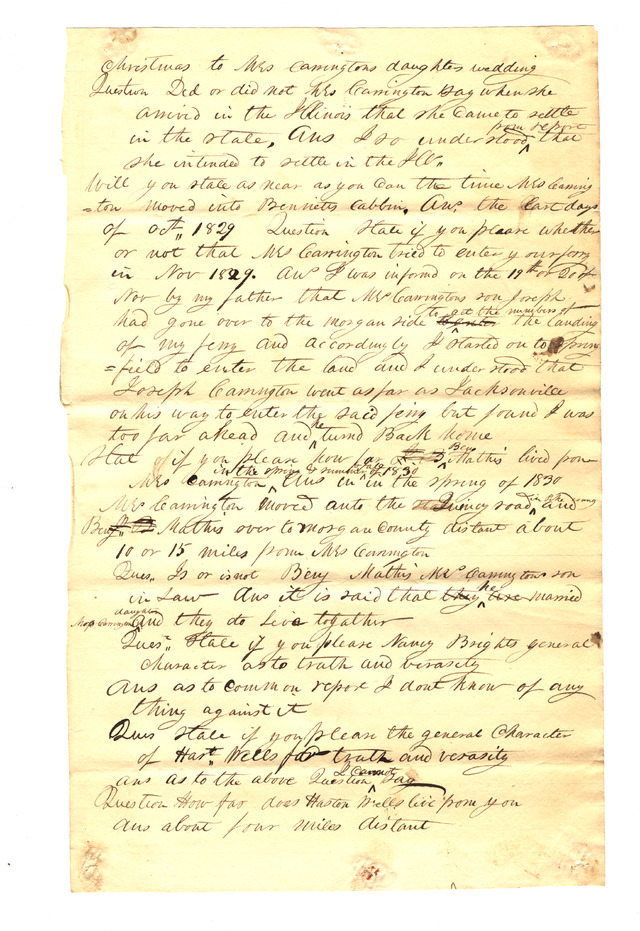 Christmas to Mrs Carringtons daughters wedding
Question Did or did not Mrs Carrington Say when she
arrived in the Illinois that she Came to settle
in the state, Ans I so understood from report that
she intended to settle in the Ill.
Will you state as near as you can the time Mrs Carring
=ton moved into Bennetts Cabbin, Ans, the last days
of Oct,, 1829 Question State if you please whether
or not that Mrs Carrington tried to enter your ferry
in Nov 1829. Ans I was informd on the 19th or 20 of
Nov by my father that Mrs Carringtons son Joseph
had gone over to the morgan side to get the numbers of the landing
of my ferry and accordingly I started on to Spring
=field to enter the land and I understood that
Joseph Carrington went as far as Jacksonville
on his way to enter the said ferry but found I was
too far ahead and he turnd Back home
State if you please how far Benj Mathis lived from
Mrs Carrington in the spring & summer of 1830 Ans in the spring of 1830
Mrs Carrington moved onto the Quincy road and
Benj Mathis over to morgan County distant about
10 or 15 miles from Mrs Carrington
Ques,, Is or is not Benj Mathis Mrs Carringtons son
in Law Ans it is said that he married
Mrs Carringtons daughter and they do live together
Ques,, State if you please Nancy Brights general
Character as to truth and verasity
Ans as to common report I dont know of any
thing against it
Ques state if you please the general Character
of Hast. Wells for truth and verasity
ans as to the above Question I Cannot Say
Question How far does Haston Wells live from you
Ans about four miles distant